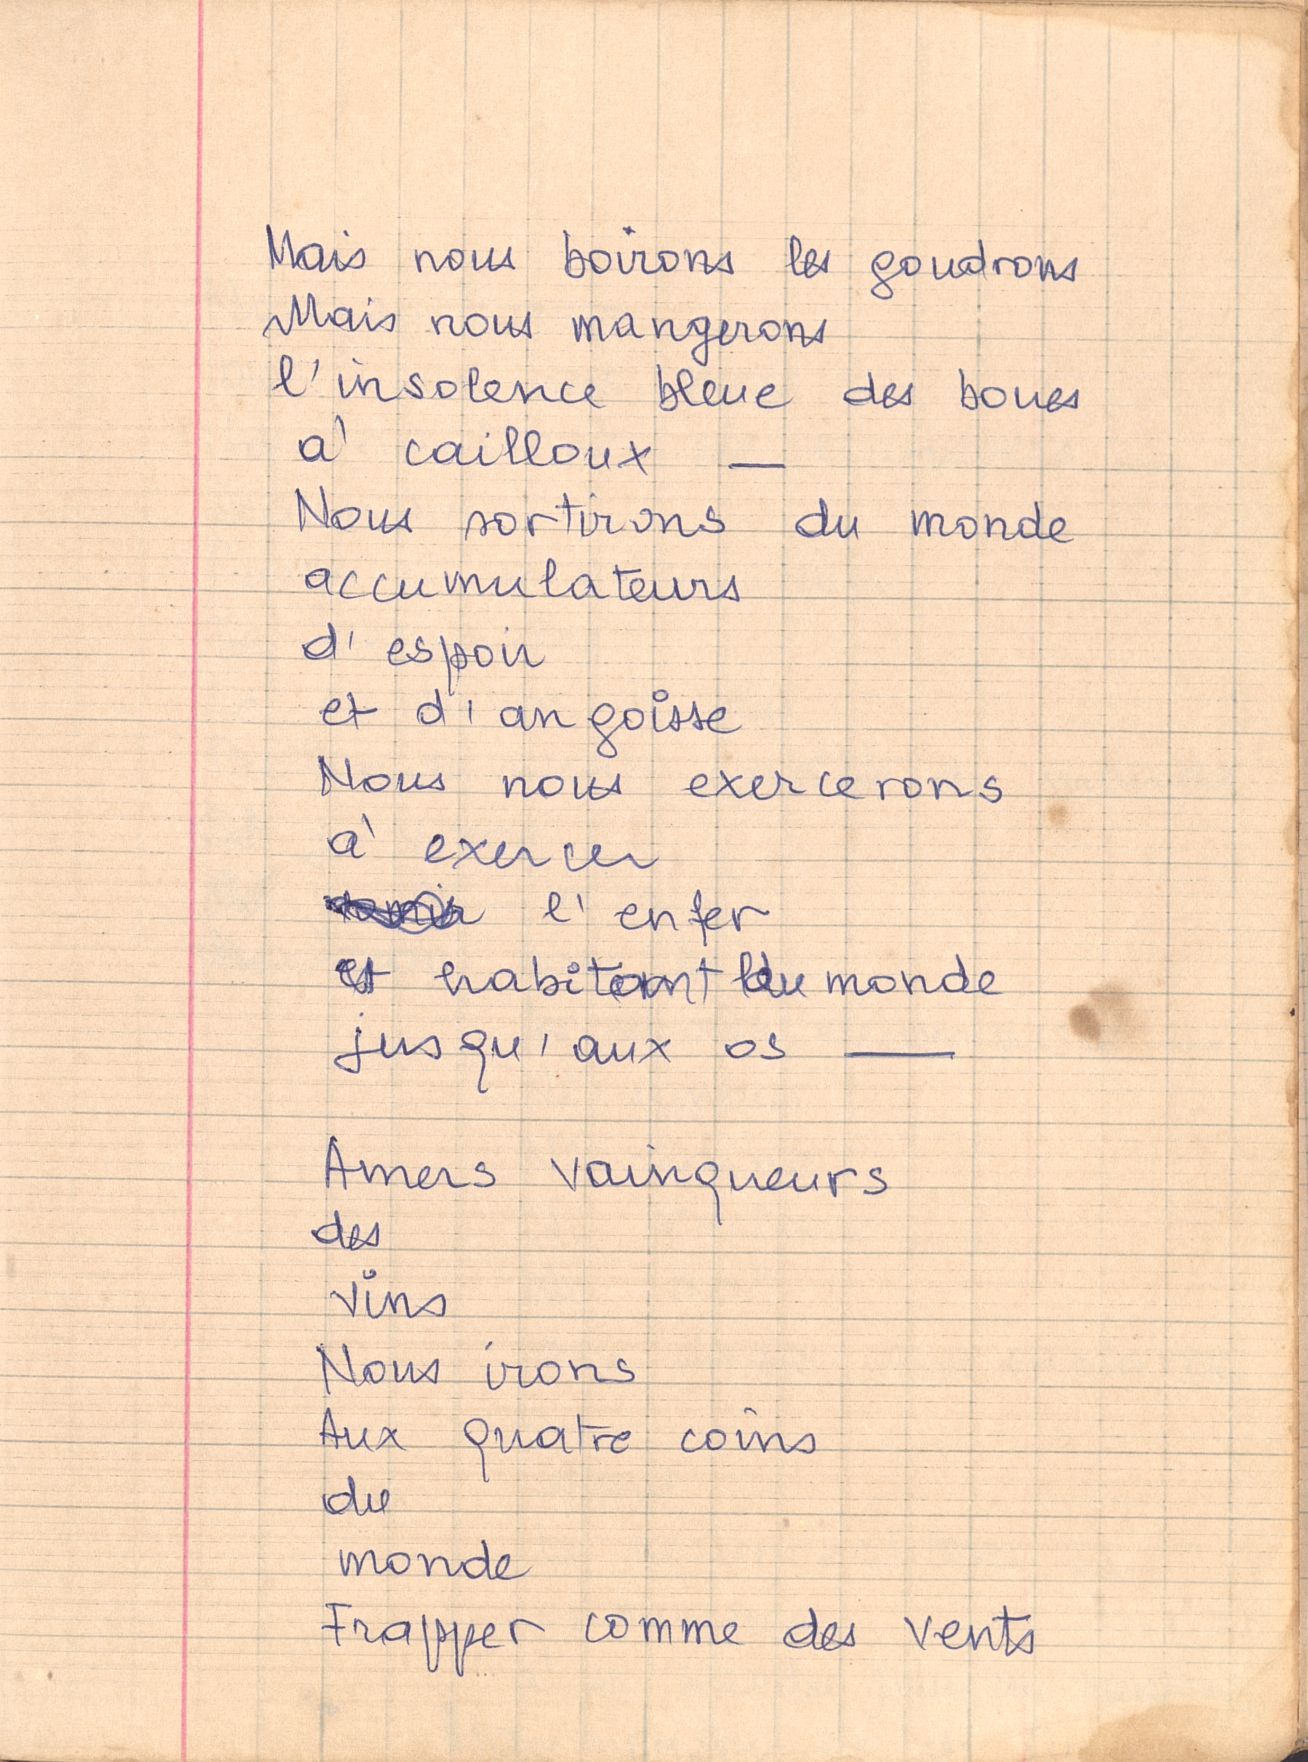 Mais nous boirons les goudrons
Mais nous mangerons
l'insolence bleue des boues
à cailloux —
Nous sortirons du monde
accumulateurs
d'espoir
et d'angoisse
Nous nous exercerons
à exercer
l'enfer
et habitant du monde
jusqu'aux os —
Amers vainqueurs
des
vins
Nous irons
Aux quatre coins
du
monde
Frapper comme des vents